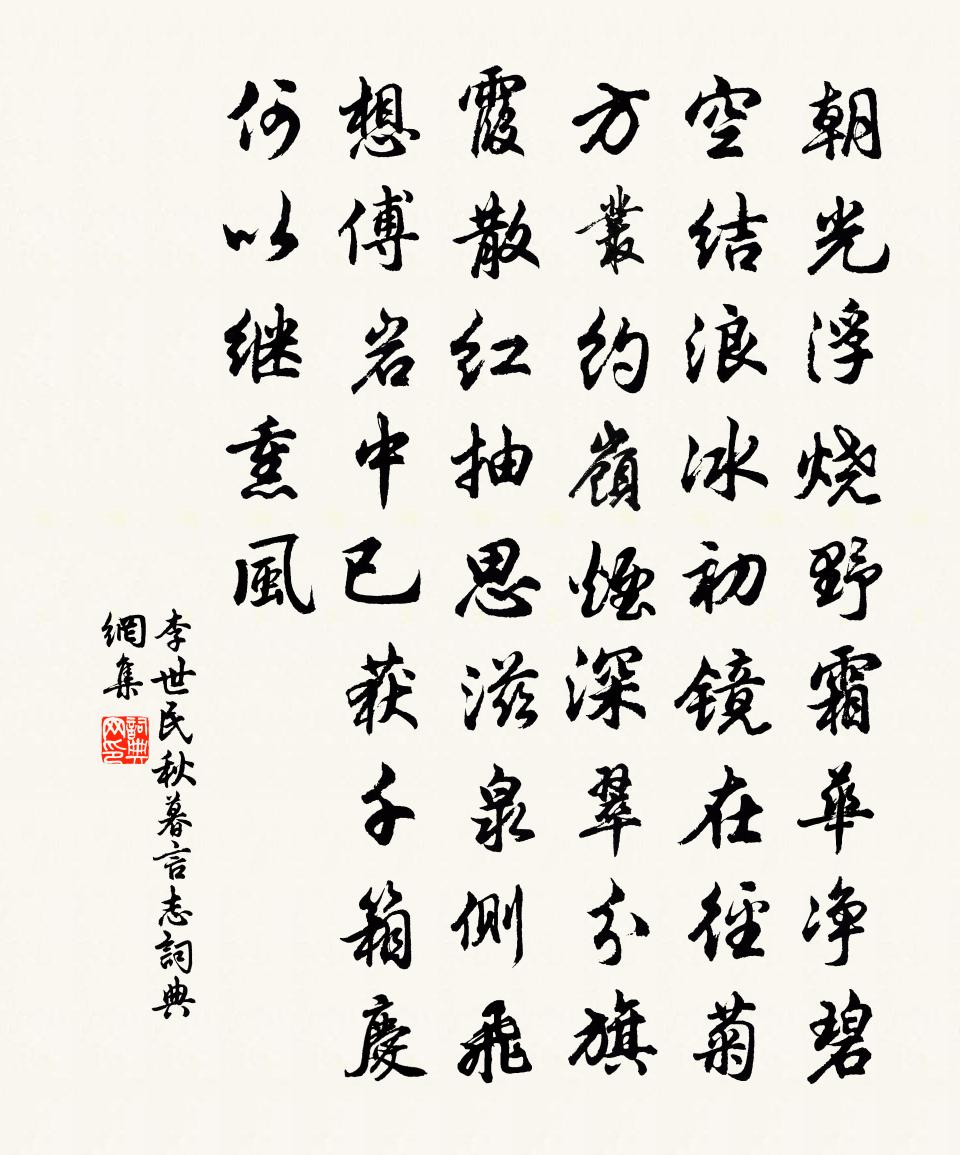 朝光浮烧野霜華净碧
空结浪冰初镜在徑菊
方叢约嶺煙深翠分旗
霞散红抽思滋泉侧飛
想傅岩中已获千箱慶
何以继熏風
李世民秋暮言志詞典
網集
詞典
网印